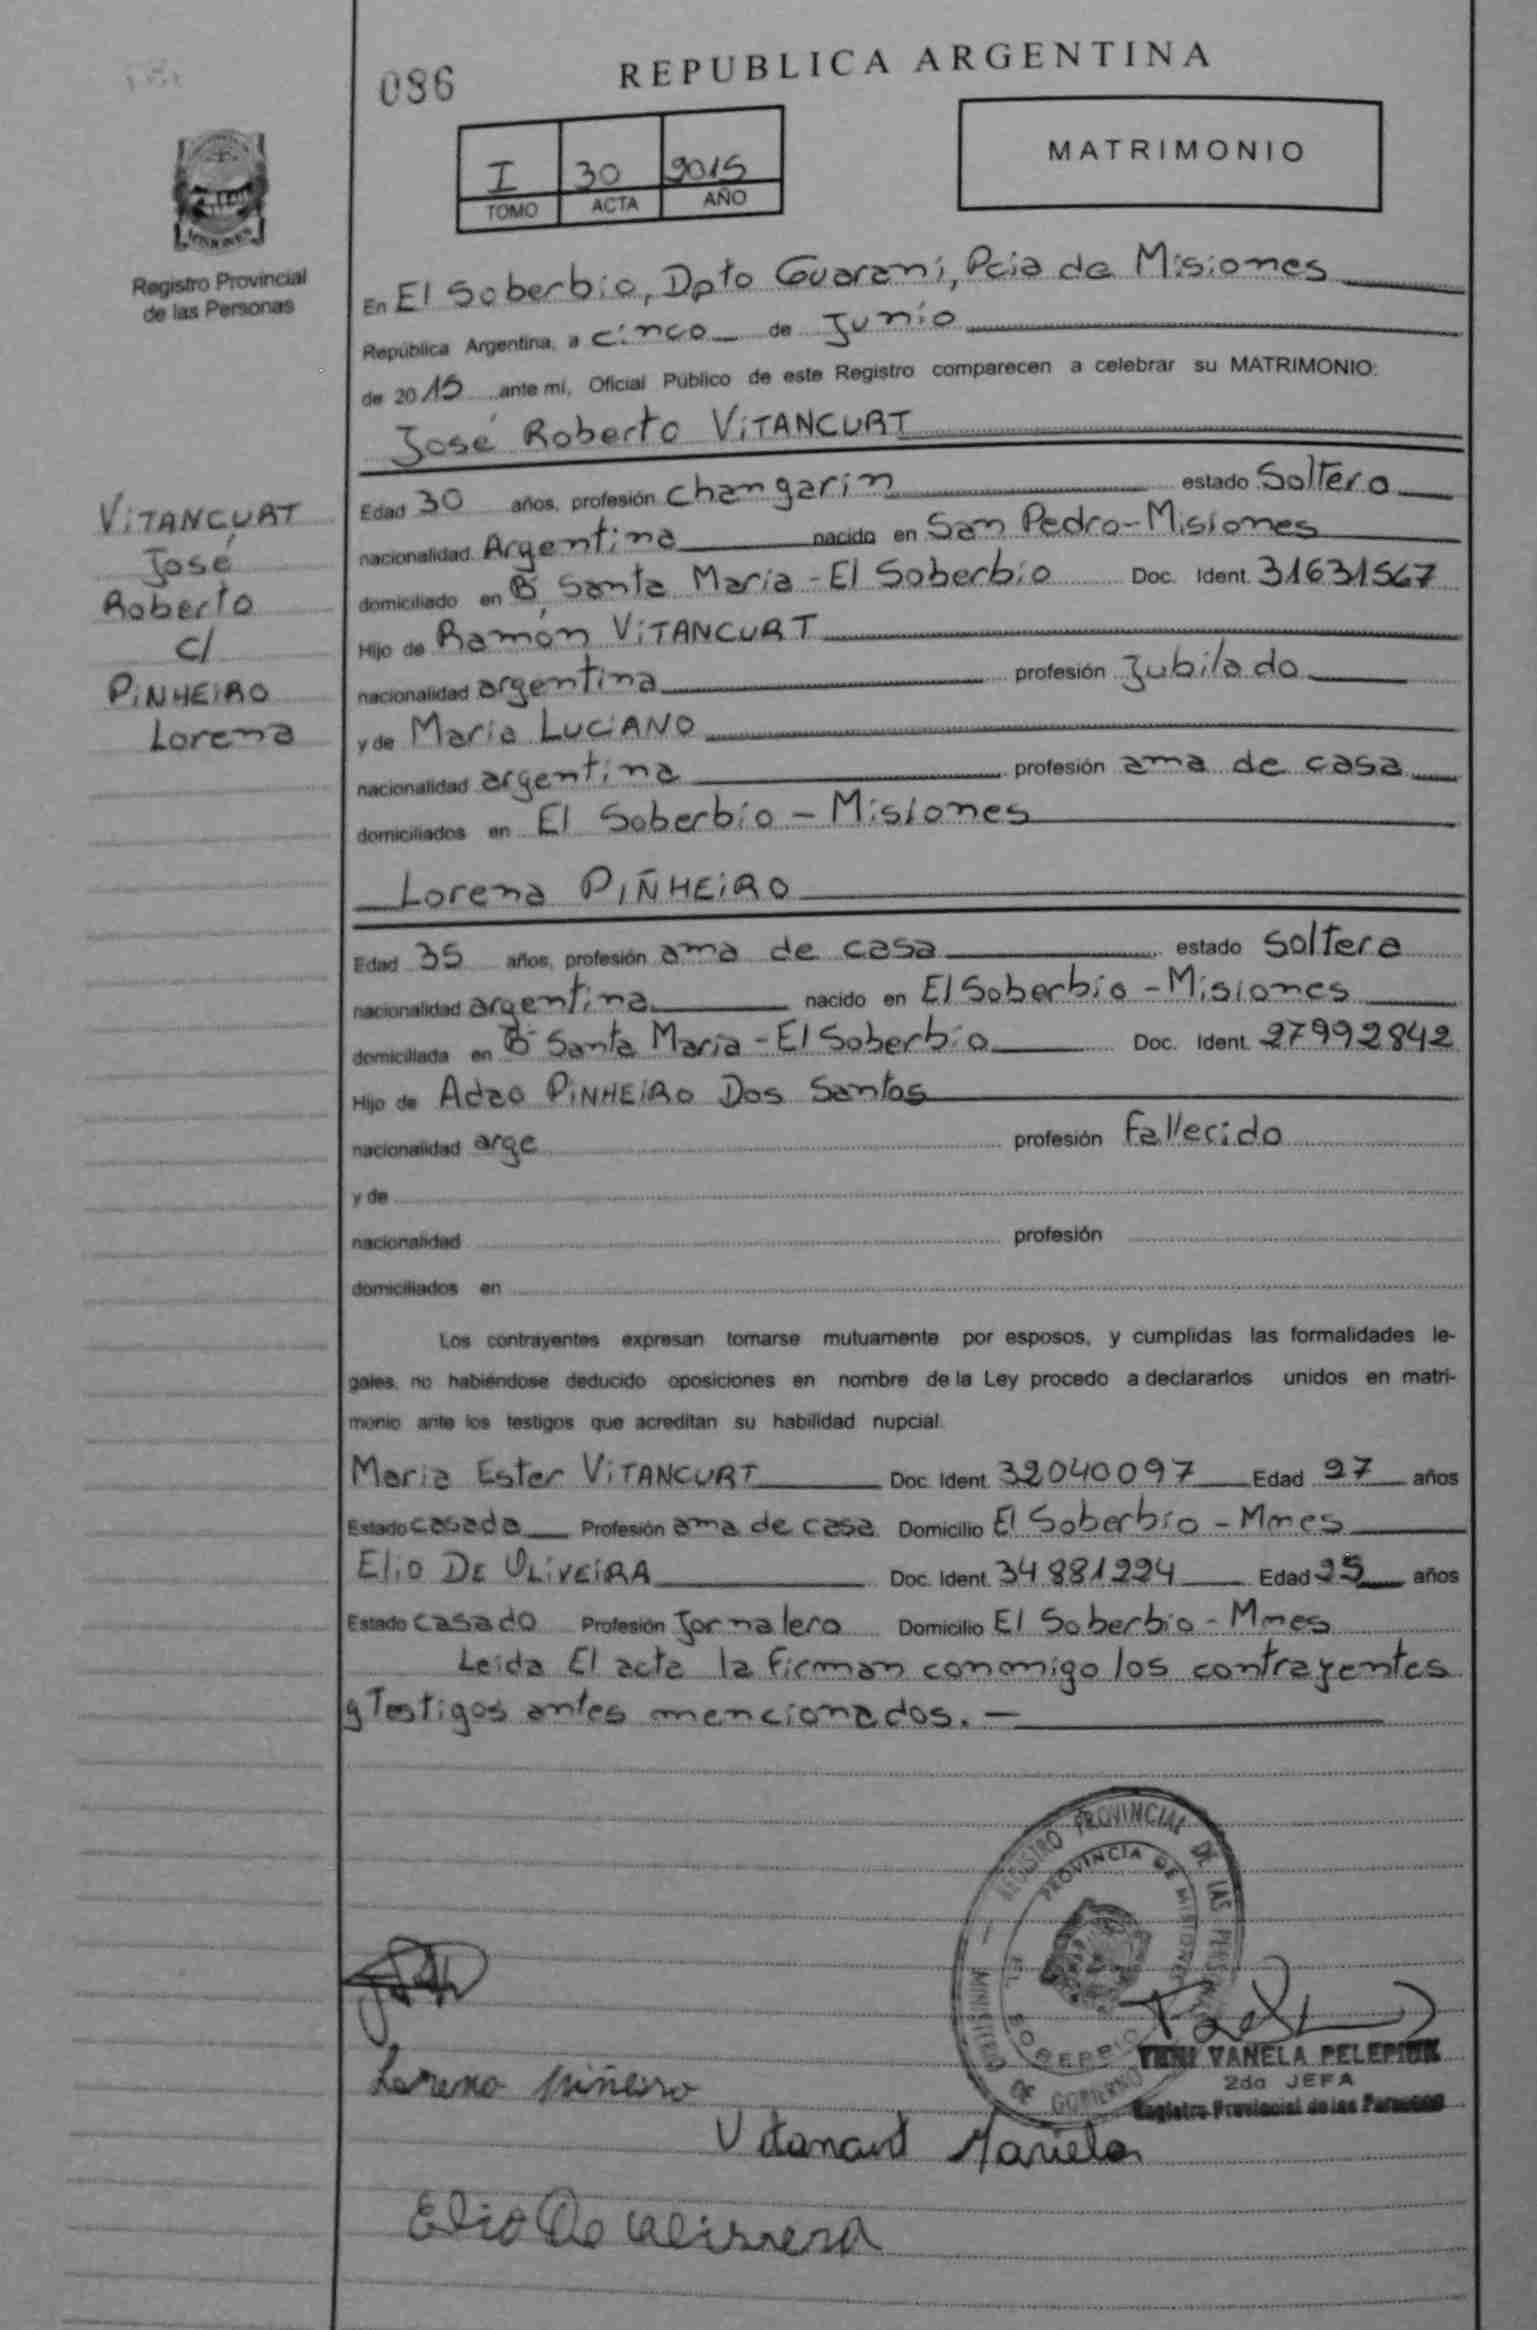 086
REPUBLICA ARGENTINA
I 30 2015
TOMO ACTA AÑO
MATRIMONIO
MISIONES
Registro Provincial
de las Personas
En El Soberbio, Dpto Guaraní, Pcia de Misiones
República Argentina, a cinco de Junio
de 2015 ante mí, Oficial Público de este Registro comparecen a celebrar su MATRIMONIO:
José Roberto VITANCURT
VITANCURT
José
Roberto
c/
PINHEIRO
Lorena
Edad 30 años, profesión changarín estado Soltero
nacionalidad Argentina nacido en San Pedro - Misiones
domiciliado en Bº Santa María - El Soberbio Doc. Ident. 31631567
Hijo de Ramón VITANCURT
nacionalidad argentina profesión Jubilado
y de María LUCIANO
nacionalidad argentina profesión ama de casa
domiciliados en El Soberbio - Misiones
Lorena PIÑHEIRO
Edad 35 años, profesión ama de casa estado Soltera
nacionalidad argentina nacido en El Soberbio - Misiones
domiciliada en Bº Santa María - El Soberbio Doc. Ident. 27992842
Hijo de Adao PINHEIRO Dos Santos
nacionalidad arge profesión Fallecido
y de
nacionalidad profesión
domiciliados en
Los contrayentes expresan tomarse mutuamente por esposos, y cumplidas las formalidades le-
gales, no habiéndose deducido oposiciones en nombre de la Ley procedo a declararlos unidos en matri-
monio ante los testigos que acreditan su habilidad nupcial.
María Ester VITANCURT Doc. Ident. 32040097 Edad 27 años
Estado casada Profesión ama de casa Domicilio El Soberbio - Mnes
Elio DE OLIVEIRA Doc. Ident. 34881224 Edad 25 años
Estado casado Profesión Jornalero Domicilio El Soberbio - Mnes
Leída El acta la firman conmigo los contrayentes
y Testigos antes mencionados. -
REGISTRO PROVINCIAL DE LAS PERSONAS
MINISTERIO DE GOBIERNO
PROVINCIA DE MISIONES
EL SOBERBIO
VANELA PELEPIUK
2da JEFA
Registro Provincial de las Personas
Lorena piñeiro
Vitancurt Mariela
Elio De oliveira